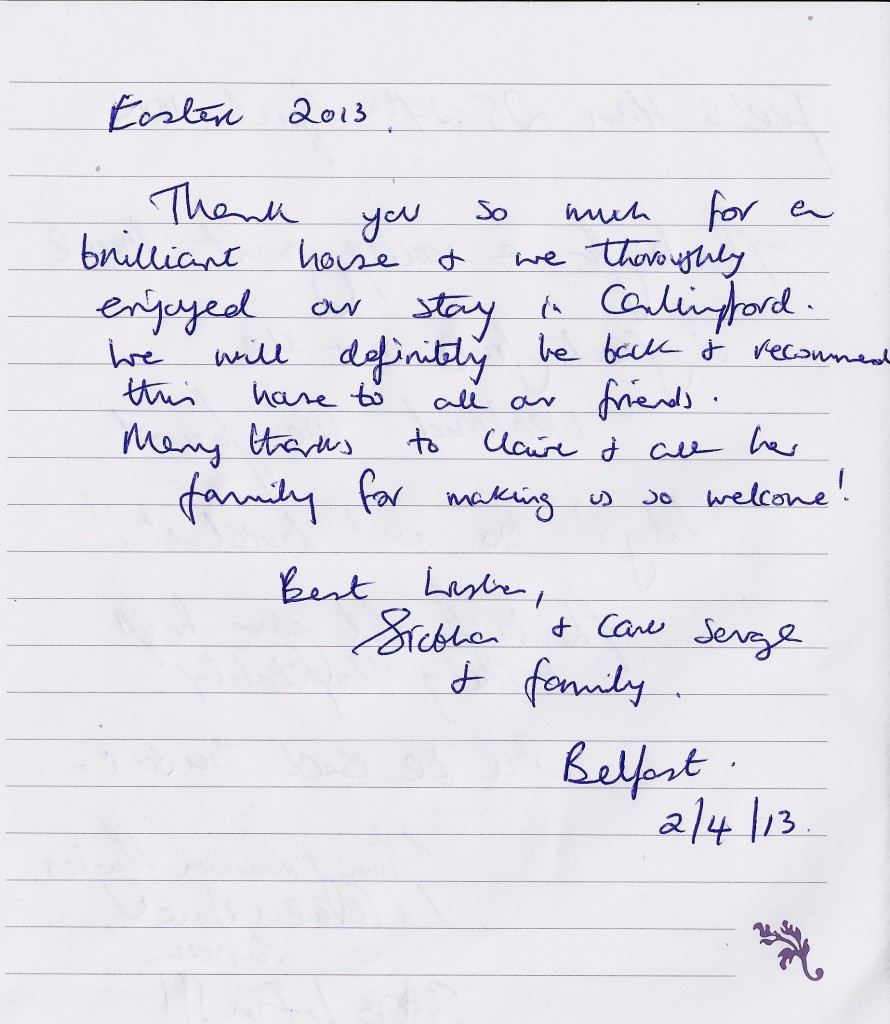 Easter 2013.
Thank you so much for a
brilliant house & we thoroughly
enjoyed our stay in Carlingford.
We will definitely be back & recommend
this house to all our friends.
Many thanks to Claire & all her
family for making us so welcome!
Best Wishes,
Siobhan & Savage
& family.
Belfast.
2/4/13.